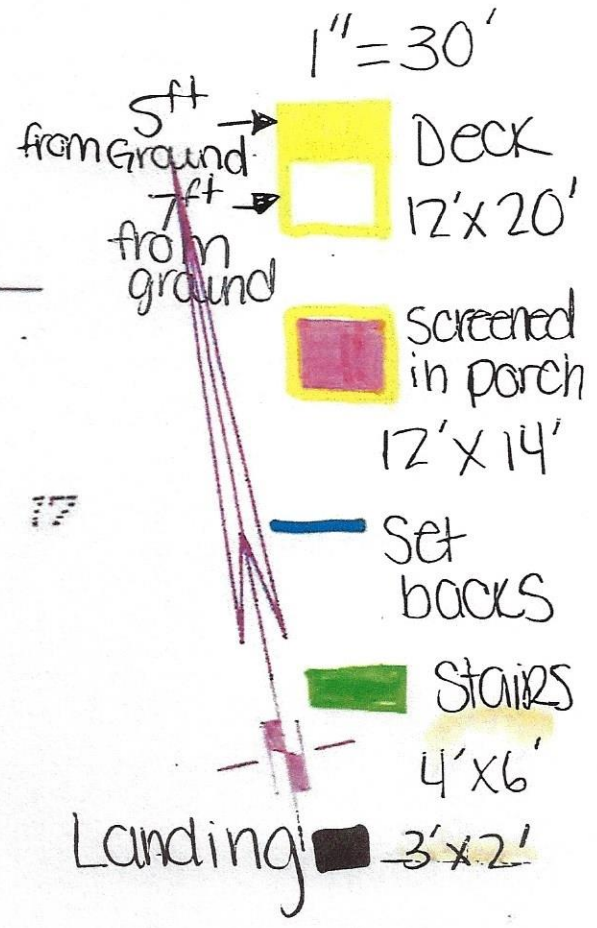 1"=30'
5ft
from Ground
7ft
from
ground
Deck
12'x20'
screened
in porch
12'x14'
17
Set
backs
Stairs
4'x6'
Landing 3'x2'